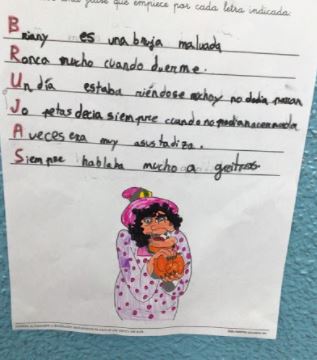 una frase que empiece por cada letra indicada.
Briany es una bruja malvada
Ronca mucho cuando duerme.
Un día estaba riéndose mucho y no podía parar
Jo petas decia siempre cuando no podian hacer nada
A veces era muy asustadiza.
Siempre hablaba mucho a gritos.